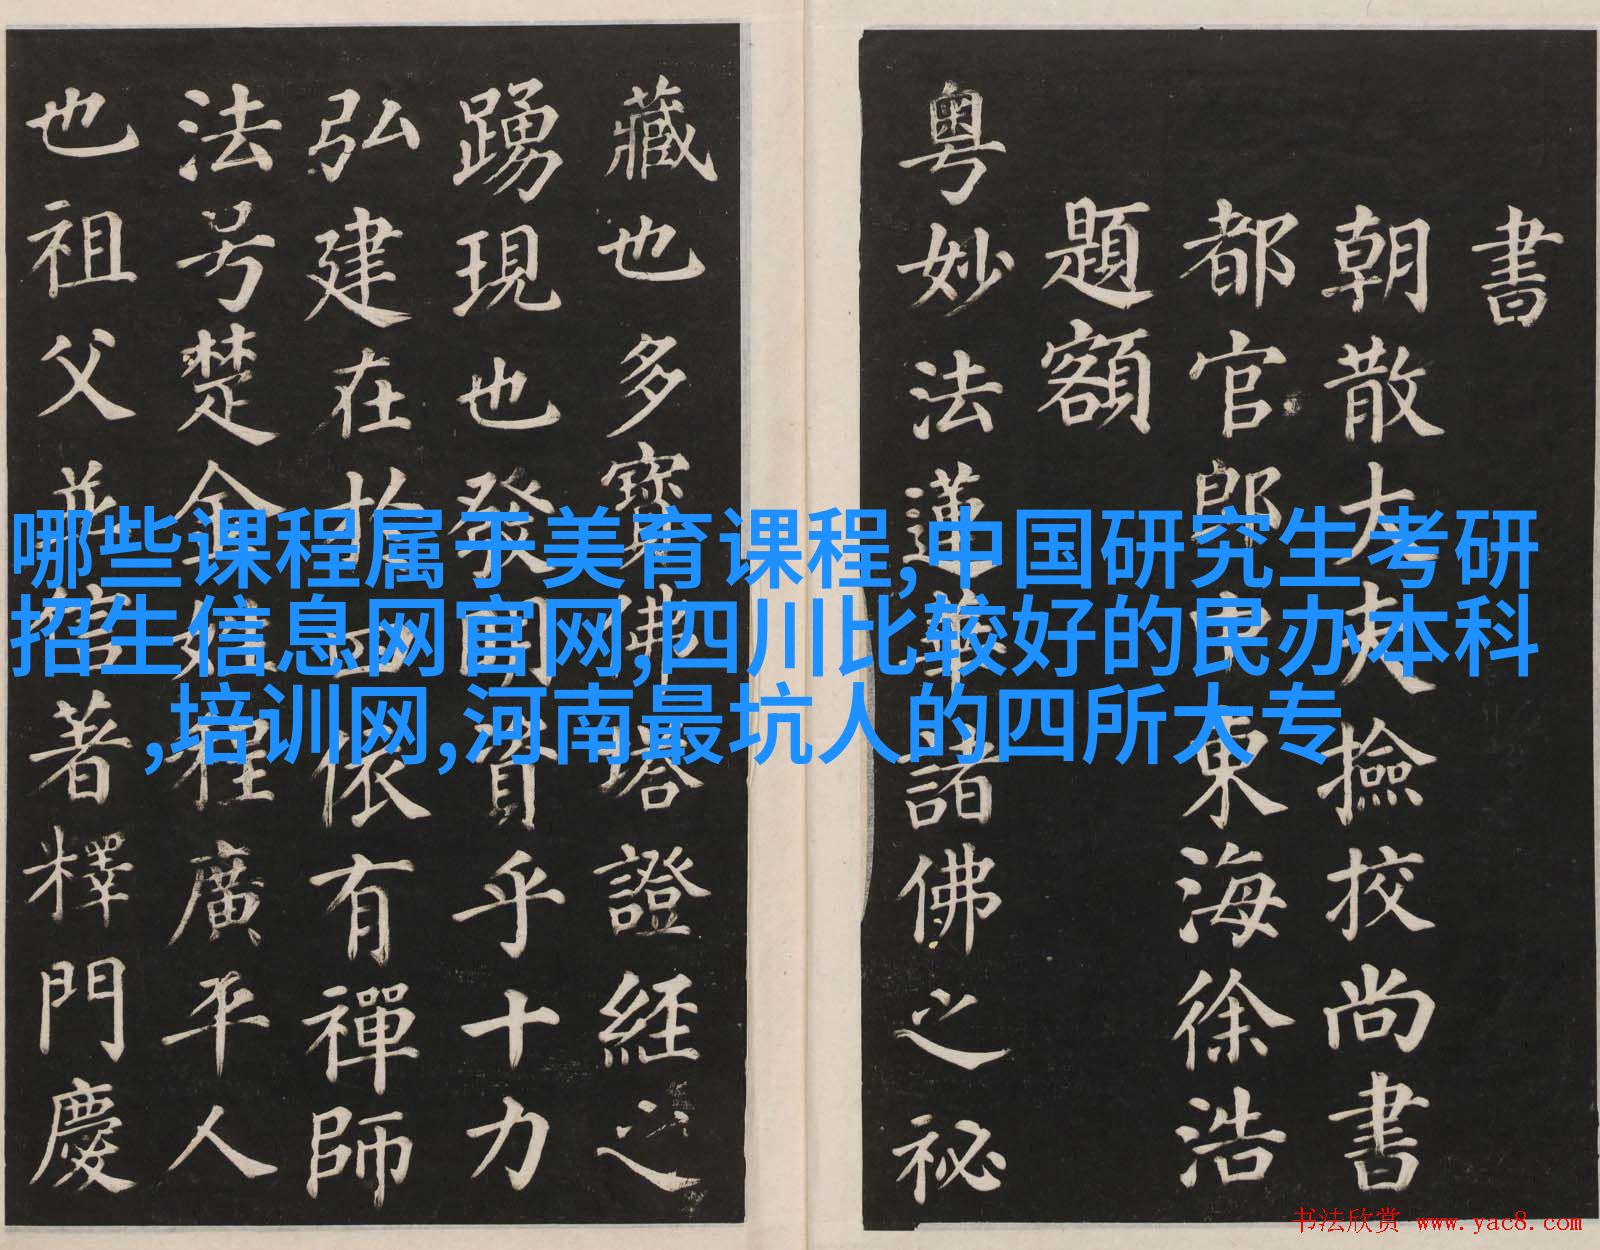 書
朝散大夫撿校尚書
都官郎中東海徐浩
題額
粵妙法蓮華諸佛之祕
藏也多寶佛塔證經之
踴現也發明資乎十力
弘建在於四依有禪師
法号楚金姓程廣平人
也祖父並信著釋門慶
哪些课程属于美育课程,中国研究生考研
招生信息网官网,四川比较好的民办本科
,培训网,河南最坑人的四所大专
书法欣赏 www.yac8.com